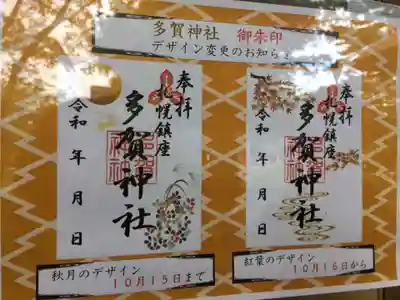 多賀神社 御朱印
デザイン変更のお知らせ
奉拝
札幌鎮座
多賀神社
令和 年 月 日
秋月のデザイン
10月15日まで
奉拝
札幌鎮座
多賀神社
令和 年 月 日
紅葉のデザイン
10月16日から